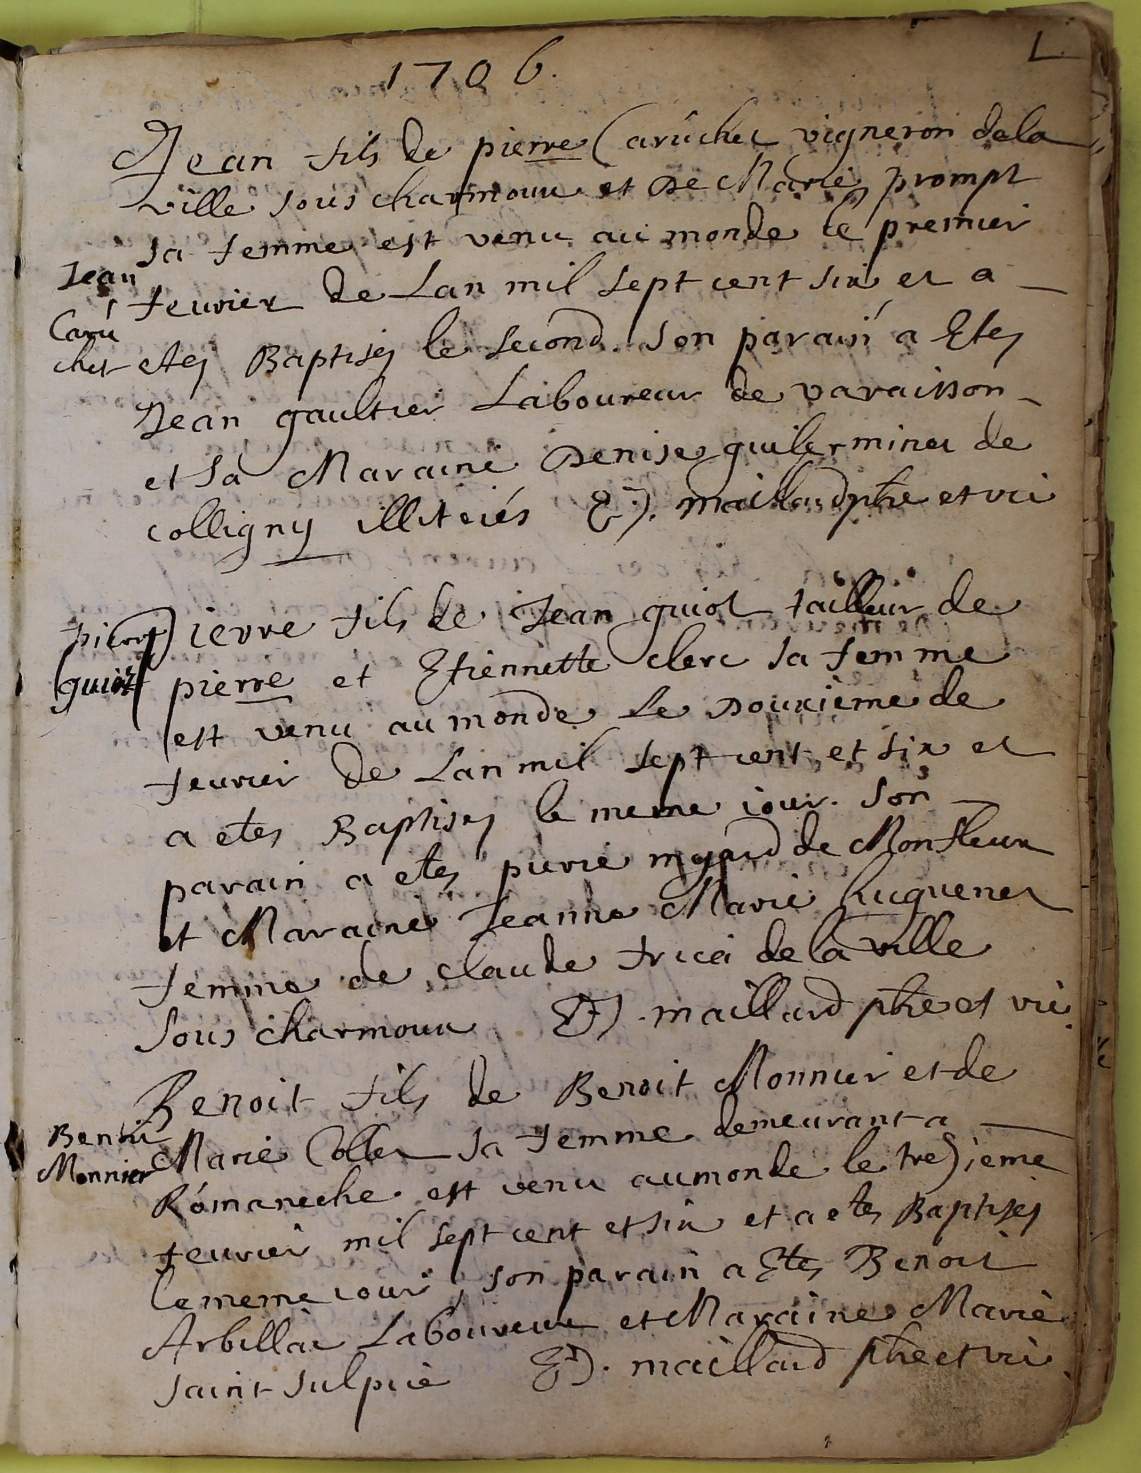 1706.
L
Jean fils de pierre Carúchet vigneron dela
ville sous charmoux et De Marie prompt
sa femme est venu au monde le premier
Jean
feurier de Lan mil sept cent six et a
Carú
chet
etéz Baptiséz le second. son parain a Etéz
Jean gaultier Laboureur de varaisson
et sa Maraine Denise guilerminet de
colligny illiteréz maillard pbre et vic
pierre
Pierre fils de Jean guiot tailleur de
guiot
pierre et Etiennette clerc sa femme
est venu au monde Le Douxième de
feurier de Lan mil sept cent et six et
a etez Baptisez le meme iour. son
parain a etez pierre mygard de Monfleur
et Maraine Jeanne Marie huguenet
femme de claude de la ville
sous charmoux maillard pbre et vic.
Benoit fils de Benoit Monnier et de
Benoit
Marie Collet sa femme demeurant a
Monnier
Romaneche est venu au monde le trezieme
feurier mil sept cent et six et a etez Baptisez
le meme iour, son parain a Etez Benoit
Arbillat Laboureur et Maraine Marie
saint sulpice maillard pbre et vic.